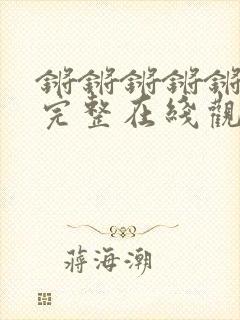 锵锵锵锵锵
完整在线觀
蒋海潮